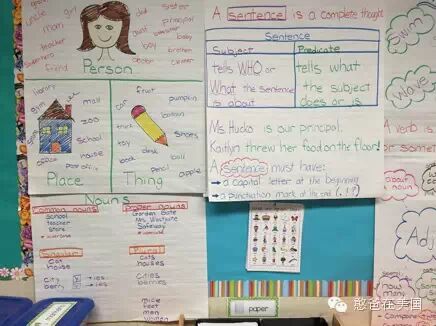 uncle
girl
mom
man
teacher
superhero
friend
sister
aunt
principal
boy
baby
brother
doctor
cleaner
Person
library
gym
mall
zoo
School
house
office
post office
Place
fruit
car
pumpkin
balloon
truck
key
Shoes
book
ball
desk
pencil
apple
Thing
A sentence is a complete thought
Sentence
Subject
Predicate
tells WHO or
What the sentence
is about
tells what
the subject
does or is
Ms. Hucko is our principal.
Kaitlyn threw her food on the floor!
A sentence must have:
→ a capital letter at the beginning
→ a punctuation mark at the end (. ! ?)
Nouns
Common nouns
school
teacher
store
Proper nouns
Golden Gate
Safeway
Singular
cat
house
city
berry
Plural
cats
houses
cities
berries
y → ies
mice
feet
men
women
Swim
Wave
A verb is
or some
about
a noun
Adj
how
many
paper
憨爸在美国